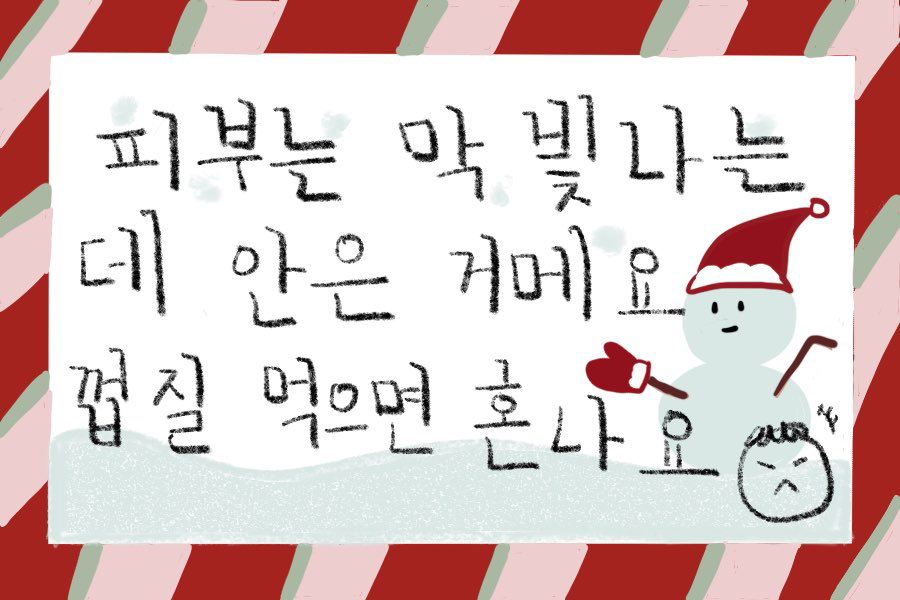 피부는 막 빛나는
데 안은 거메요
껍질 먹으면 혼나요